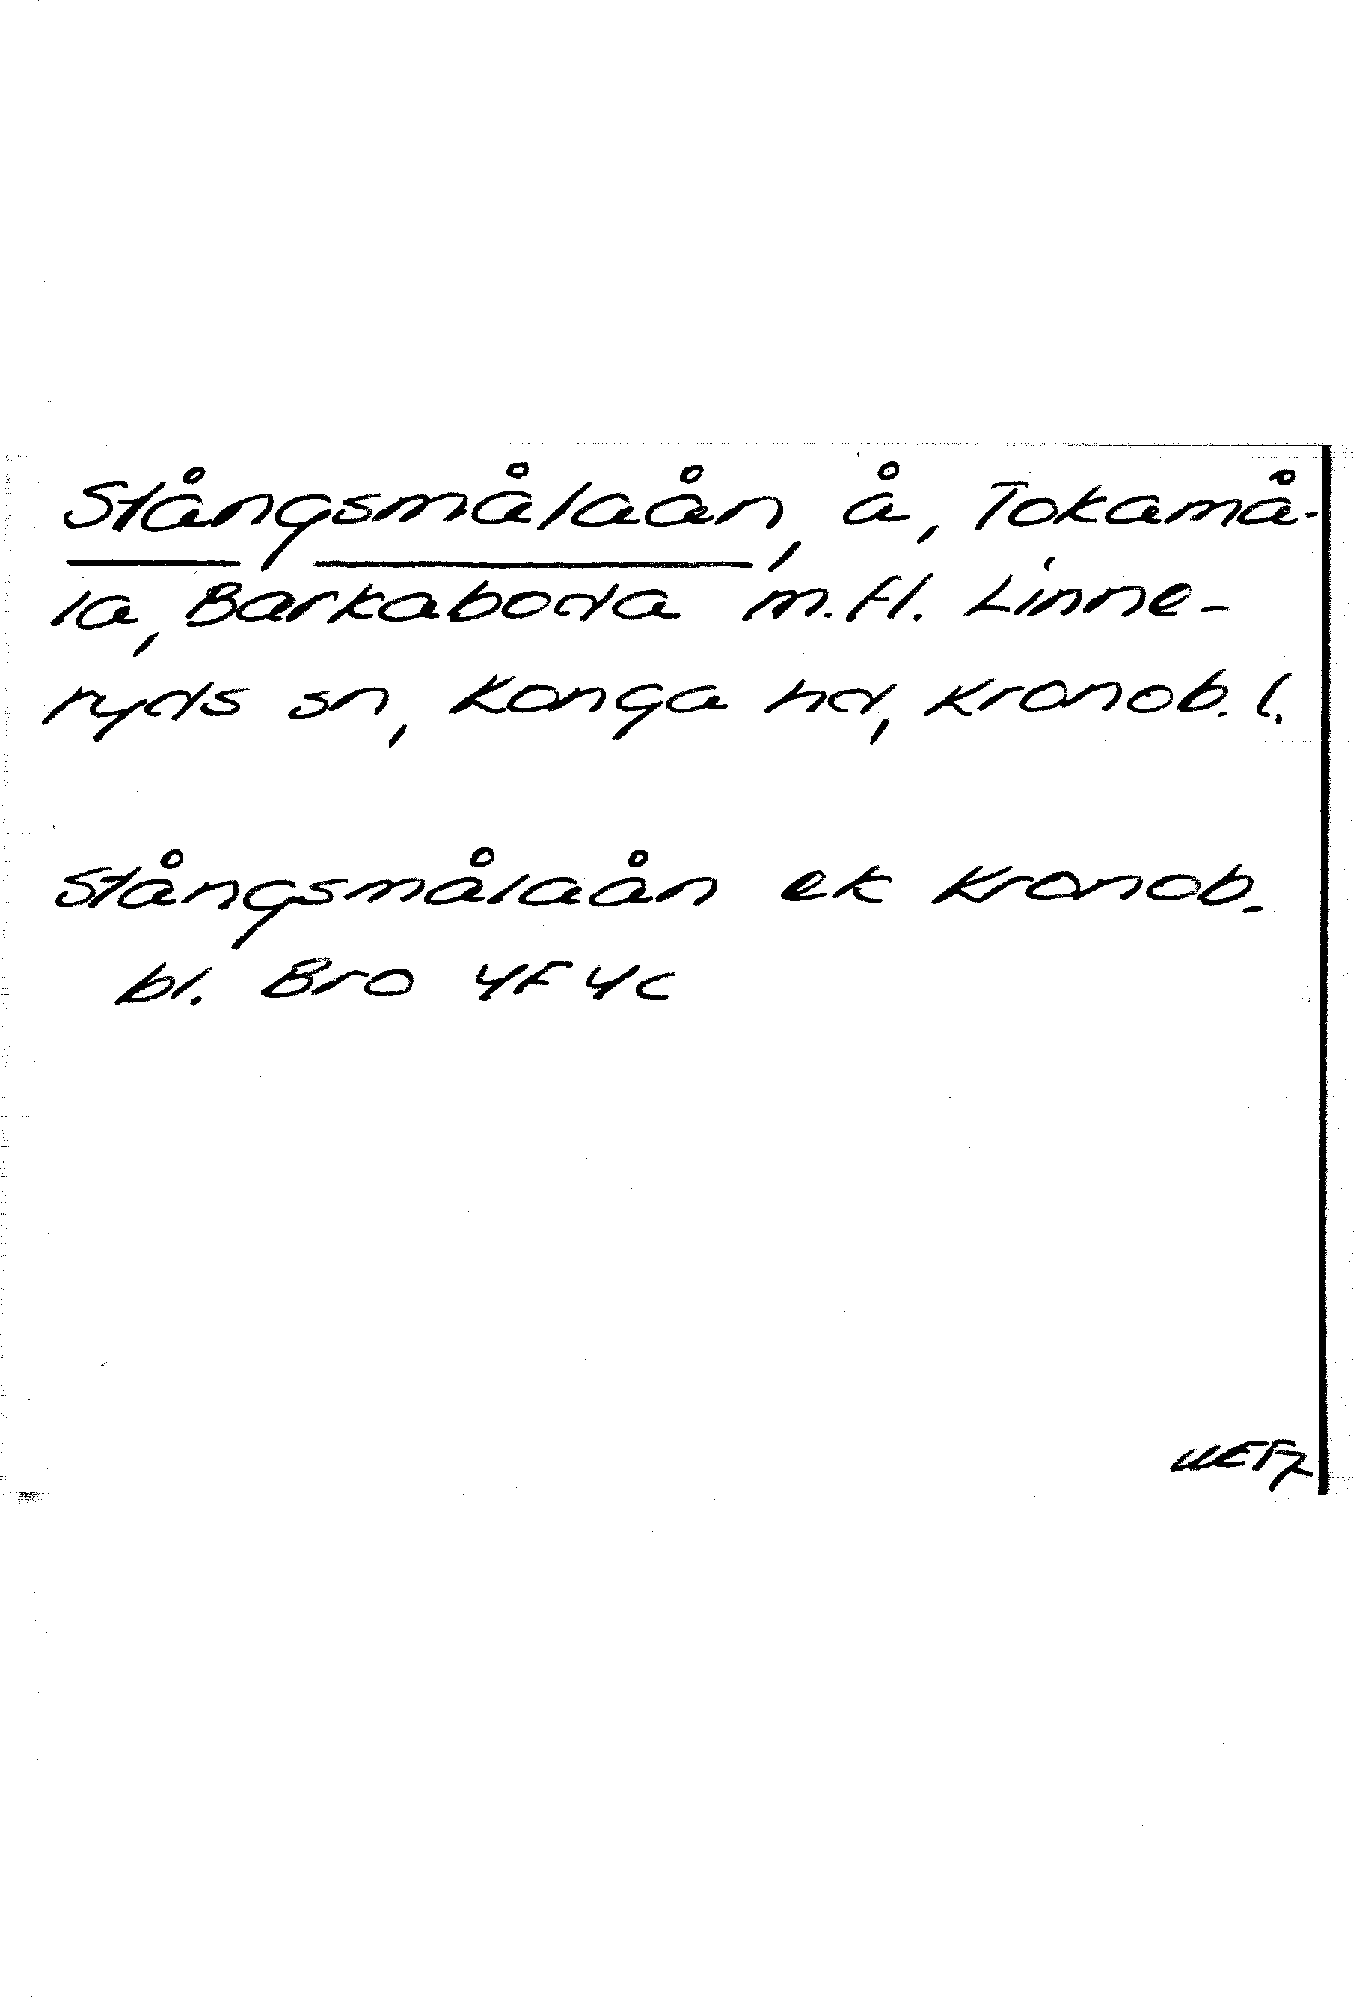 Stångsmålaån, å, Tokamå-
la, Barkaboda m.fl. Linne-
ryds sn, Konga hd, Kronob. l.
Stångsmålaån ek Kronob.
bl. Bro 4F 4c